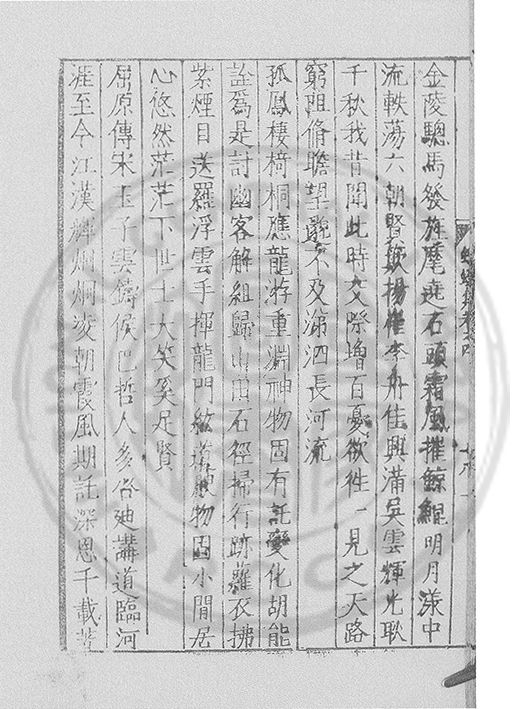 金陵驄馬發旌麾遶石頭霜風摧鯨鯤明月漾中
流軼蕩六朝賢歌揚崔李舟佳興滿吳雲輝光耿
千秋我昔聞此時交際增百憂欲往一見之天路
窮阻脩瞻望歌不及涕泗長河流
孤鳳棲椅桐應龍游重淵神物固有託變化胡能
詮為是討幽客解組歸山田石徑掃行跡蘿衣拂
紫煙目送羅浮雲手揮龍門絃道物固小閒居
心悠然茫茫下世士大笑奚足賢
屈原傳宋玉子雲儔侯巴哲人多啓廸講道臨河
涯至今江漢輝烱烱凌朝霞風期託深恩千載